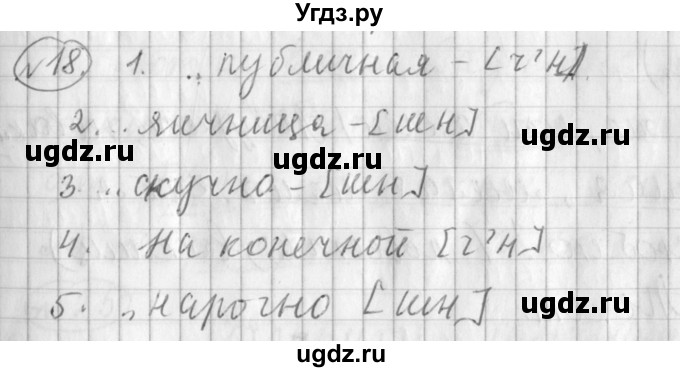 Угдз.ру
№18. 1. .. публичная - [ч'н].
2. .. яичница - [шн]
3. .. скучно - [шн]
4. На конечной [ч'н]
5. .. нарочно [шн]
ugdz.ru
ugdz.ru
ugdz.ru
ugdz.ru
ugdz.ru
ugdz.ru
ugdz.ru